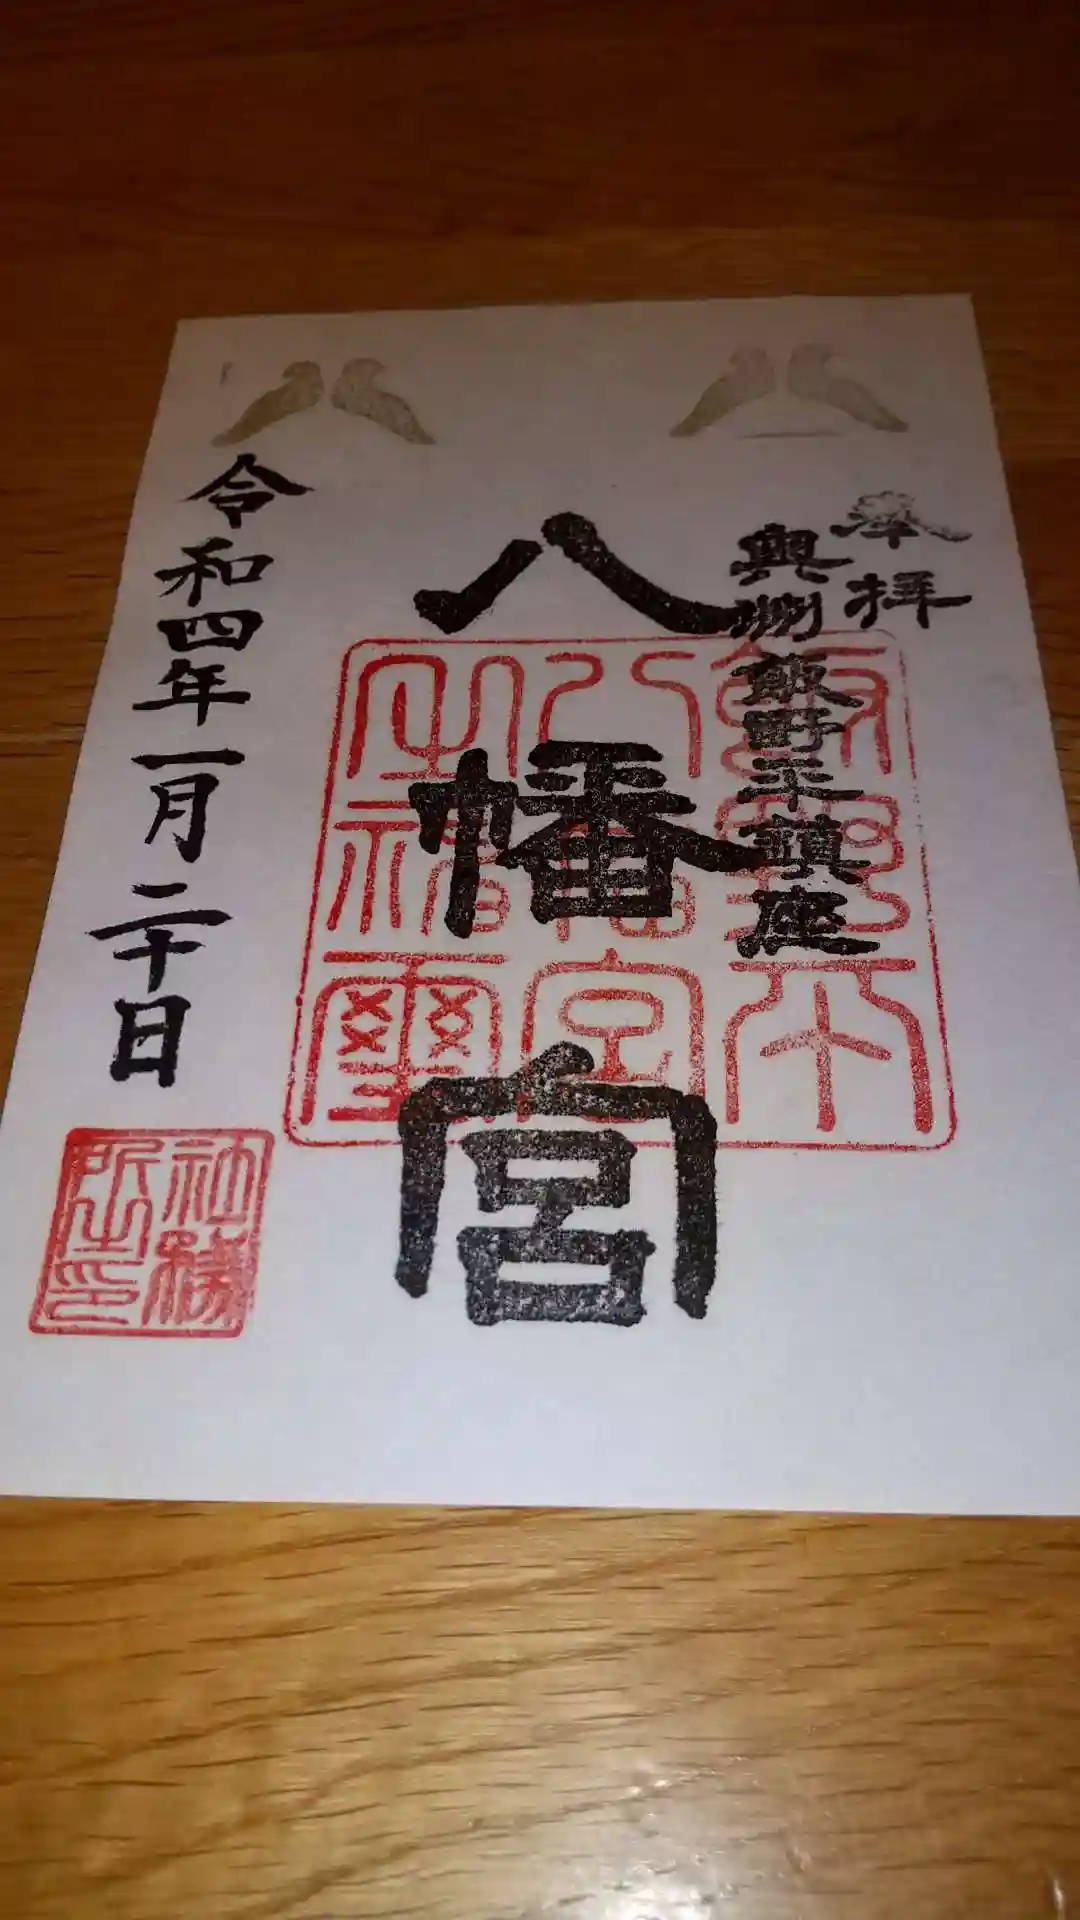 奉拝
奥州飯野平鎮座
八幡宮
飯野平
八幡宮
令和四年一月二十日
社務
所之印